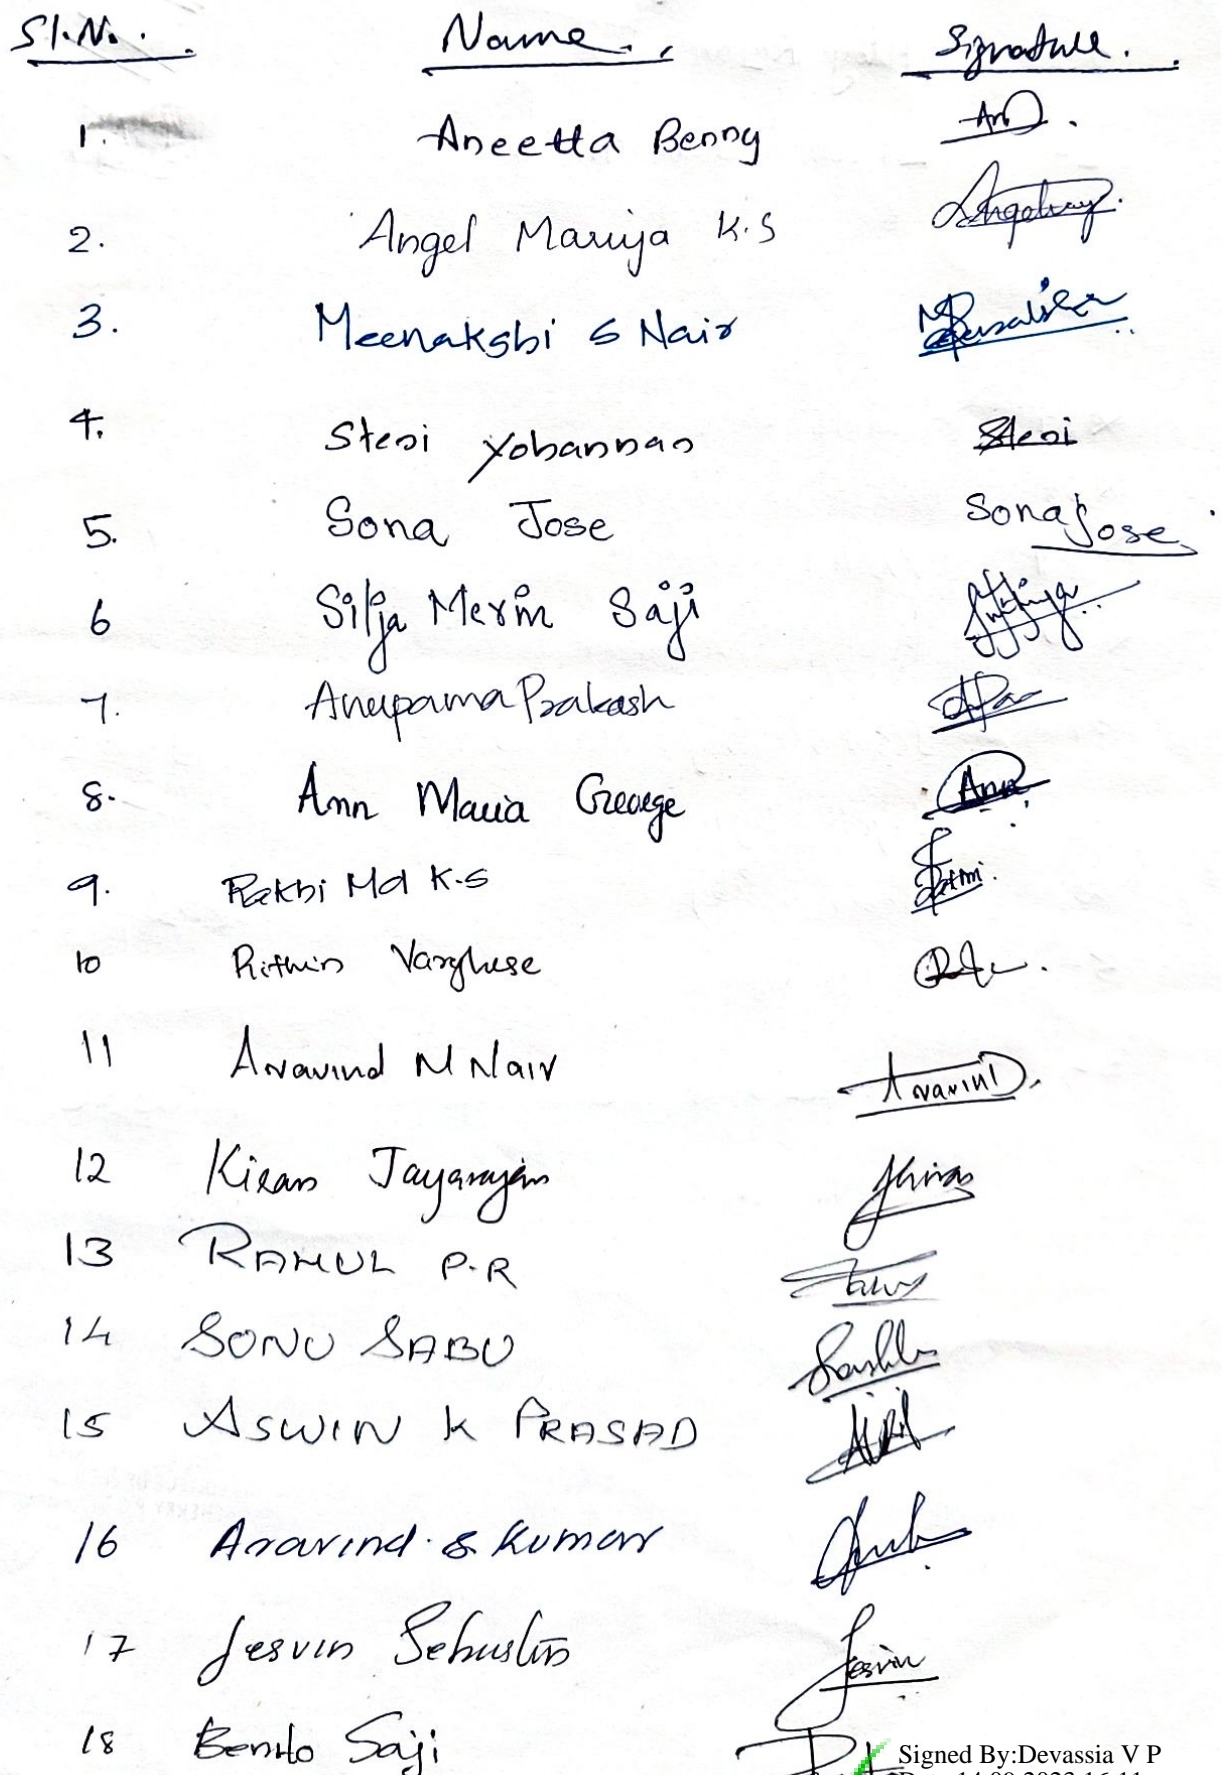 Sl.No. Name. Signature.
1. Aneetta Benny
2. Angel Mariya K.S
3. Meenakshi S Nair
4. Steni Yohannan Steni
5. Sona Jose Sona Jose
6 Silja Merin Saji
7. Anupama Prakash
8. Ann Maria George Ann
9. Rakhi Mol K.S
10 Rithin Varghese
11 Aravind M Nair AravinD.
12 Kiran Jayarajan Kiran
13 RAHUL P.R
14 SONU SABU
15 ASWIN K PRASAD
16 Aravind. S Kumar
17 Jesvin Sebastin Jesvin
18 Benito Saji
Signed By:Devassia V P